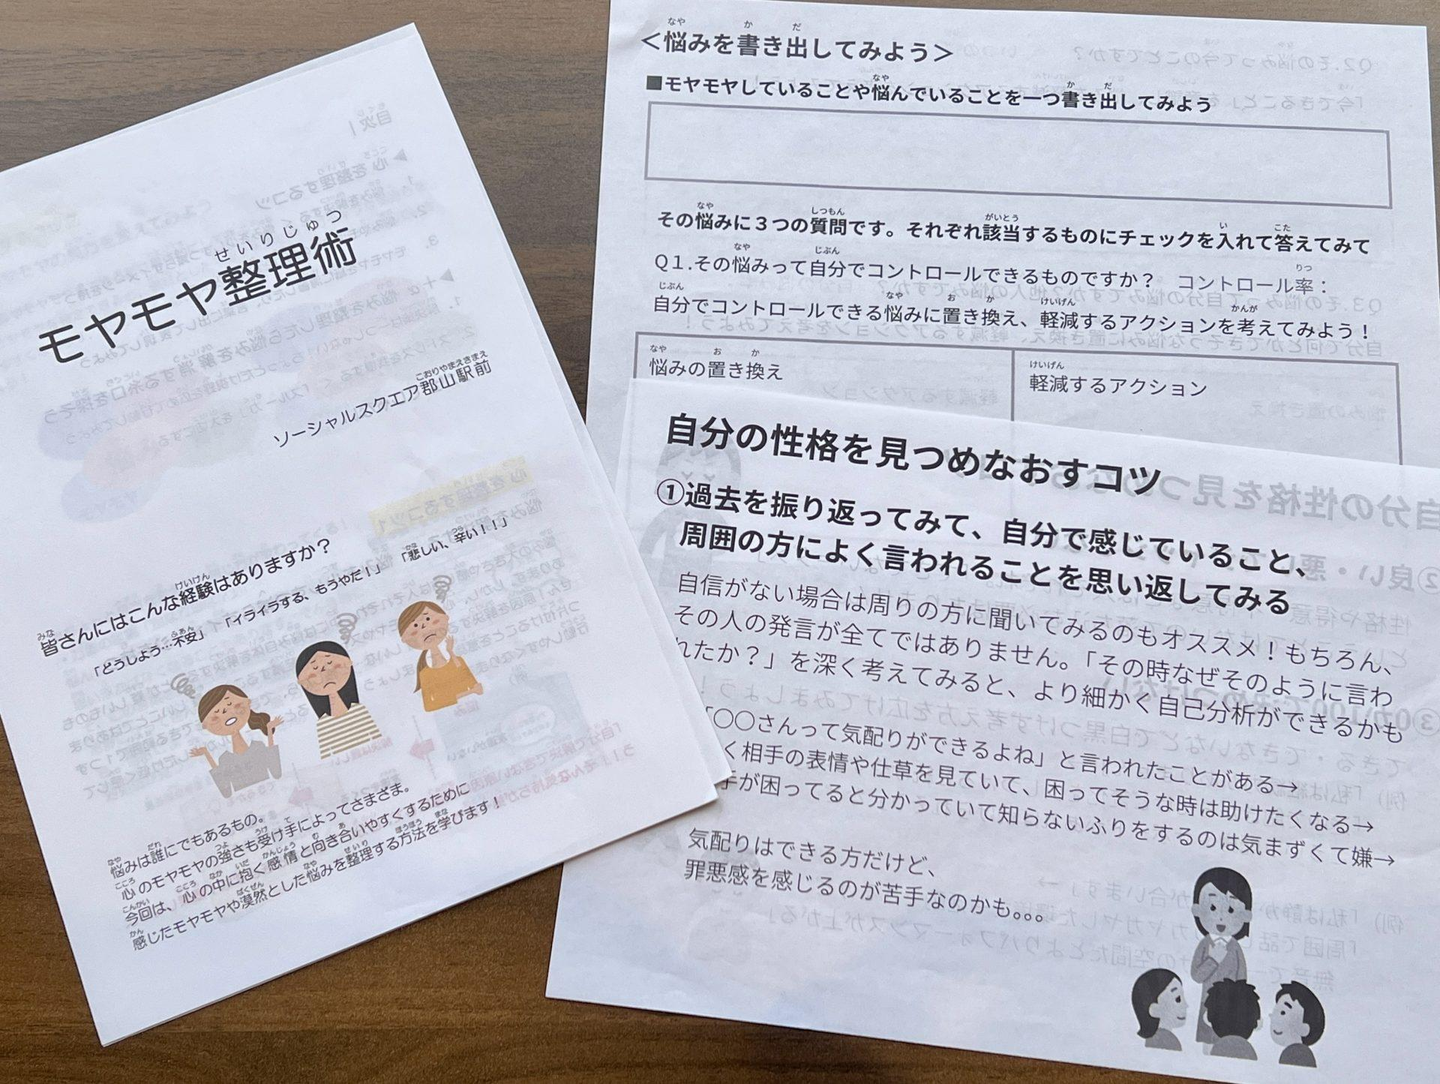 モヤモヤ整理術
せいりじゅつ
ソーシャルスクエア郡山駅前
こおりやまえきまえ
皆さんにはこんな経験はありますか？
みな けいけん
「どうしよう…不安」 「イライラする、もうやだ！」 「悲しい、辛い！！」
ふあん かな つら
悩みは誰にでもあるもの。
なや だれ
心のモヤモヤの強さも受け手によってさまざま。
こころ つよ うけ て
今回は、心の中に抱く感情と向き合いやすくするために
こんかい こころ なか いだ かんじょう む あ
感じたモヤモヤや漠然とした悩みを整理する方法を学びます！
かん ばくぜん なや せいり ほうほう まな
＜悩みを書き出してみよう＞
なや か だ
■モヤモヤしていることや悩んでいることを一つ書き出してみよう
なや か だ
その悩みに３つの質問です。それぞれ該当するものにチェックを入れて答えてみて
なや しつもん がいとう い こた
Q１.その悩みって自分でコントロールできるものですか？ コントロール率：
なや じぶん りつ
自分でコントロールできる悩みに置き換え、軽減するアクションを考えてみよう！
じぶん なや お か けいげん かんが
悩みの置き換え
なや お か
軽減するアクション
けいげん
自分の性格を見つめなおすコツ
①過去を振り返ってみて、自分で感じていること、
周囲の方によく言われることを思い返してみる
自信がない場合は周りの方に聞いてみるのもオススメ！もちろん、
その人の発言が全てではありません。「その時なぜそのように言わ
れたか？」を深く考えてみると、より細かく自己分析ができるかも
「〇〇さんって気配りができるよね」と言われたことがある→
く相手の表情や仕草を見ていて、困ってそうな時は助けたくなる→
手が困ってると分かっていて知らないふりをするのは気まずくて嫌→
気配りはできる方だけど、
罪悪感を感じるのが苦手なのかも。。。